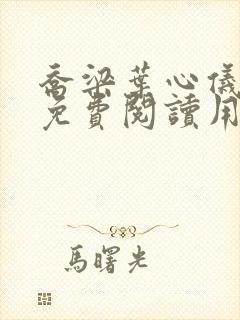 喬梁葉心儀
免費閱讀用
馬曙光